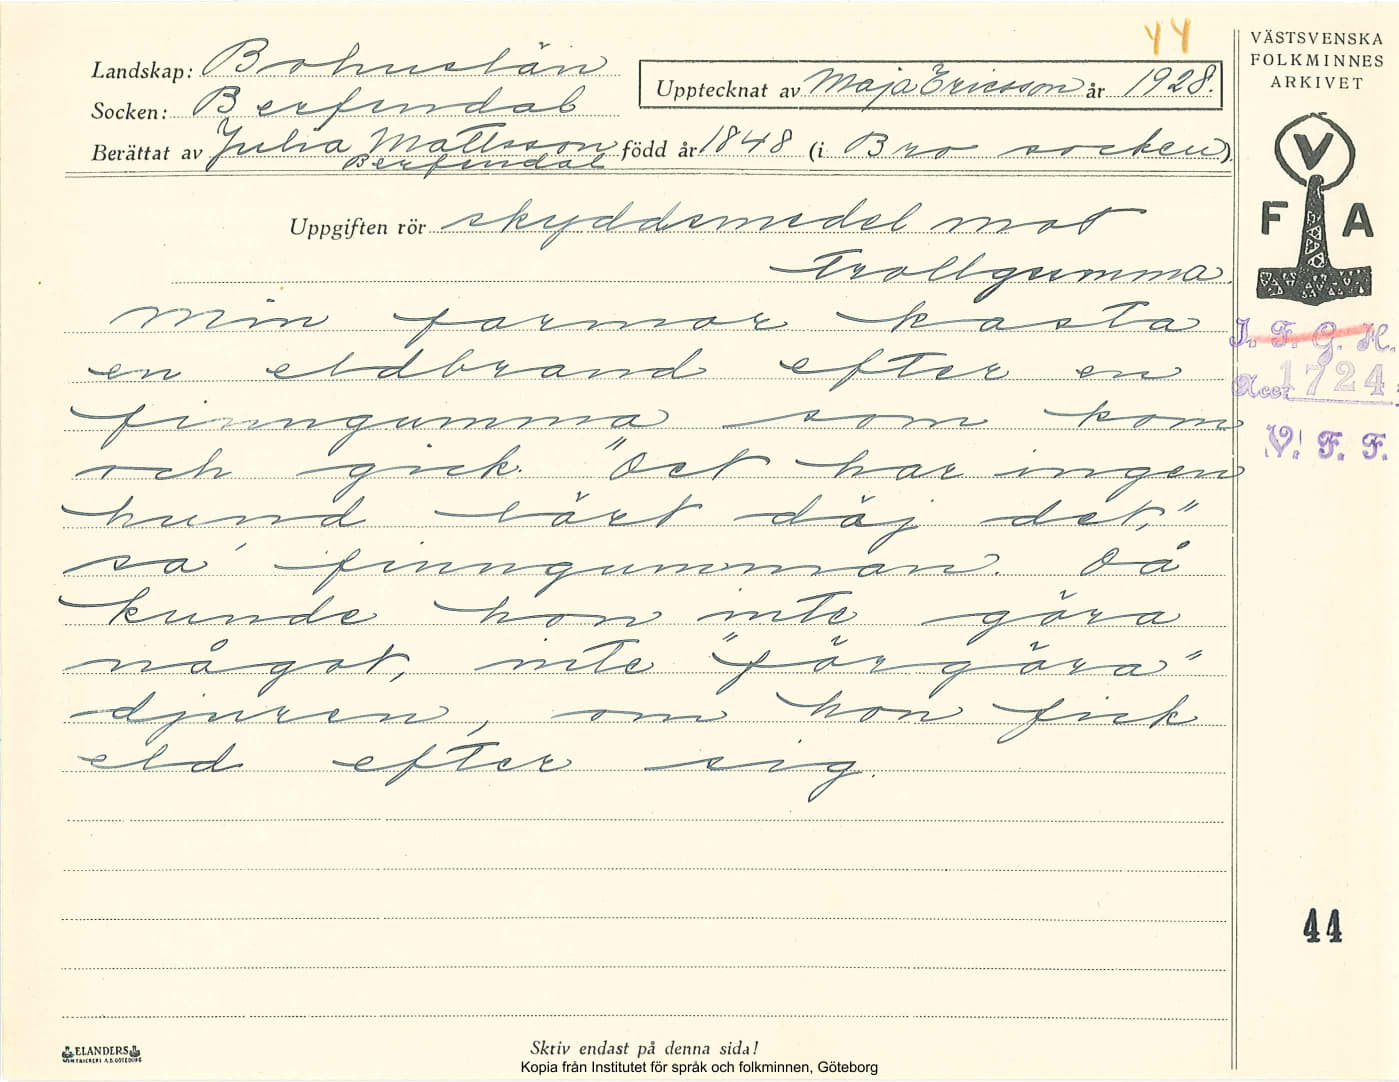 44
VÄSTSVENSKA
FOLKMINNES
ARKIVET
Landskap: Bohuslän
Upptecknat av Maja Ericsson år 1928.
Socken: Berfendal
Berättat av Julia Mattsson född år 1848 (i Bro socken)
Berfendal
V
F A
Uppgiften rör skyddsmedel mot
trollgumma.
Min farmor kasta
en eldbrand efter en
finngumma som kom
och gick. "Det har ingen
hund lärt däj det,"
sa' finngumman. Då
kunde hon inte göra
något, inte "förgöra"
djuren, om hon fick
eld efter sig.
I. F. G. H.
Acc. 1724
V. F. F.
44
ELANDERS
Skriv endast på denna sida!
Kopia från Institutet för språk och folkminnen, Göteborg